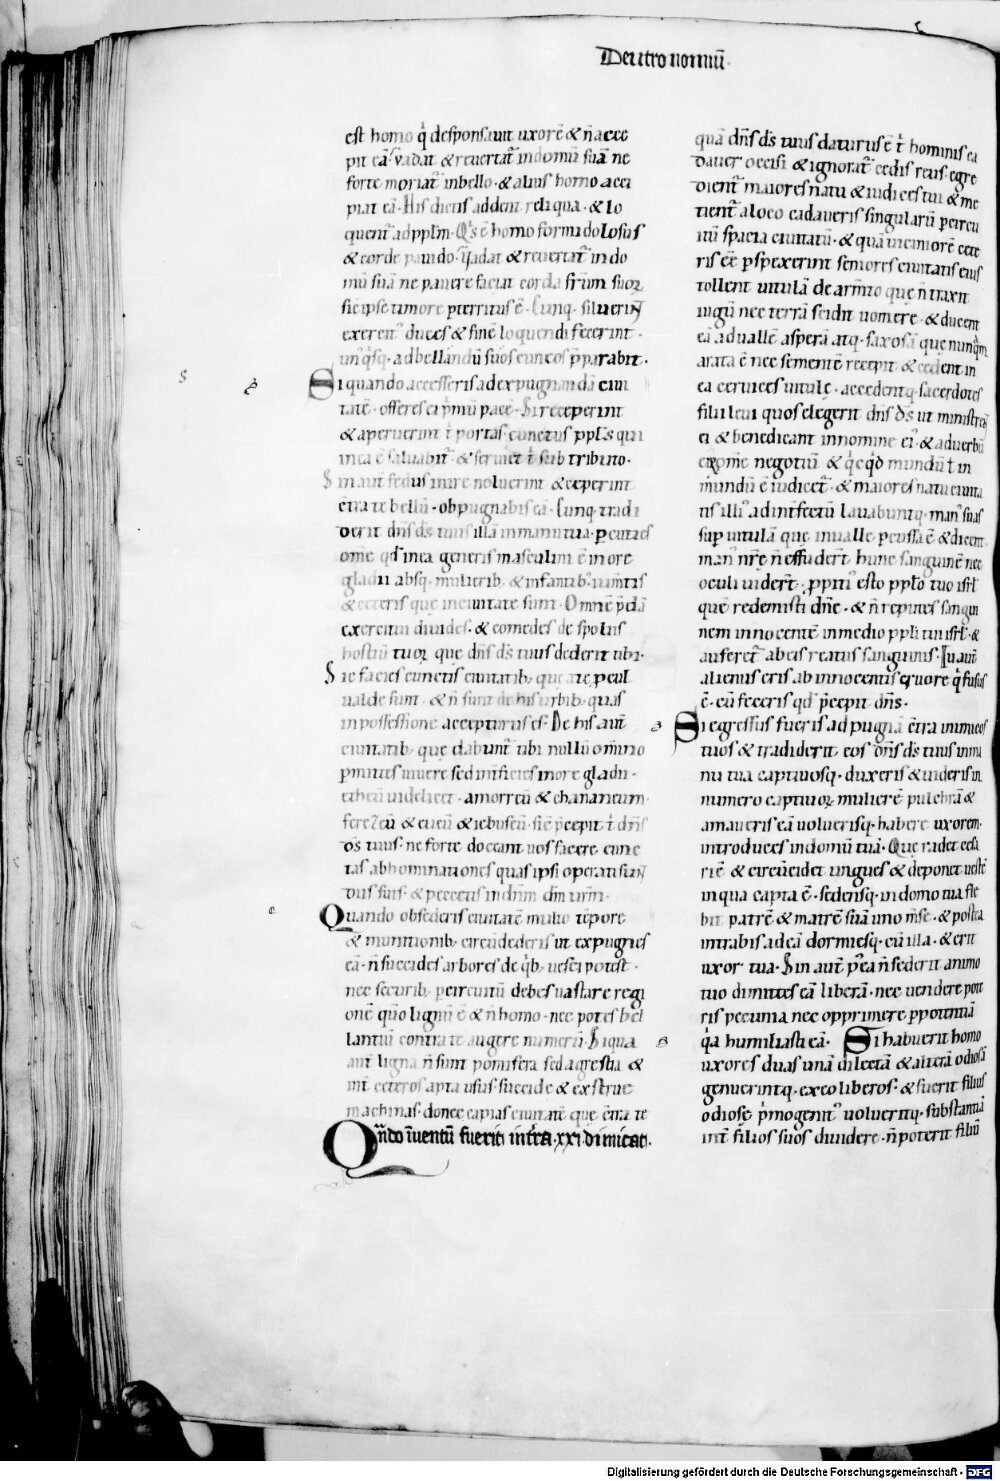 Deutronomiū.
est homo q̇ desponsauit uxorē & n̄ acce
pit eā· vadat & reuertat᷑ in domū suā ne
forte moriat᷑ in bello· & alius homo acci
piat eā· His dictis addent reliqua· & lo
quent᷑ ad pplm̄· Qͥs ē homo formidolosus
& corde pauido· uadat & reuertat᷑ in do
mū suā ne pauere faciat corda fr̄um suoꝝ
sic ipse timore pterritus ē· Cunq· siluerint
exercit᷒ duces & finē loquendi fecerint·
unꝰqͥsq· ad bellandū suos cuneos p̄parabit·
Si quando accesseris ad expugnandā ciui
tatē· offeres ei pͥmū pacē· Si receperint
& aperuerint t̄ portas· cunctus ppl̄s qui
in ea ē saluabit᷑· & seruiet t̄ sub tributo·
Sin aut̄ fedus inire noluerint & ceperint
c̄tra te bellū· obpugnabis eā· Cunq tradi
derit dn̄s ds̄ tuus illā in manu tua· peuties
om̄e qd̓ in ea generis masculini ē in ore
gladii absq· mulierib· & infantib· ium̄tis
& ceteris que in ciuitate sunt· Omnē p̄dā
exercitui diuides· & comedes de spoliis
hostiū tuoꝝ que dn̄s ds̄ tuus dederit tibi·
Sic facies cunctis ciuitatib· que a te ꝓcul
ualde sunt· & n̄ sunt de his urbib· quas
in possessione accepturus es· De his aut̄
ciuitatib· que dabunt᷑ tibi nullū omīno
pmittes uiuere sed int̄ficies in ore gladii·
etheū uidelicet· amorreū & chananeum·
ferezeū & eueū & iebuseū· sic p̄cepit t̄ dn̄s
ds̄ tuus· ne forte doceant uos facere cunc
tas abhominationes quas ipsi operati sunt
diis suis· & peccetis in dn̄m dm̄ urm̄·
Quando obsederis ciuitatē multo tēpore
& munitionib· circūdederis ut expugnes
eā· n̄ succides arbores de qͥb· uesci potest·
nec securib· p circuitū debes uastare regi
onē· quō lignū ē & n̄ homo· nec potest bel
lantiū contra te augere numerū· Si qua
aut̄ ligna n̄ sunt pomifera sed agrestia &
int̄ ceteros apta usus succide & exstrue
machinas· donec capias ciuitatē que c̄tra te
Qn̄do iuentū fuerit intra· xxi· dimicat·
quā dn̄s ds̄ tuus daturus ē t̄ hominis ca
dauer occisi & ignorat᷑ cedis reus· egre
dient᷑ maiores natu & iudices tui & me
tient᷑ a loco cadaueris singularū p circu
itū spacia ciuitatū· & quā uiciniorē cete
ris eē pspexerint seniores ciuitatis eius
tollent uitulā de arm̄to que n̄ traxit
iugū nec terrā scidit uomere· & ducent
eā ad uallē asperā atq· saxosā que nunqͣm
arata ē nec sementē recepit & cedent in
ea ceruices uitulę· accedentq· sacerdotes
filii leui quos elegerit dn̄s ds̄ ut ministrent
ei & benedicant in nomine ei᷒ & ad uerbū
eoꝝ om̄e negotiū & qͥcqͥd mundū t in
mūndū ē iudicet᷑· & maiores natu ciuita
tis illi᷒ ad int̄fectū lauabuntq· man᷒ suas
sup uitulā que in ualle pcussa ē & dicent
man᷒ nr̄e n̄ effuder̄t hunc sanguinē nec
oculi uider̄t· ppiti᷒ esto pplo tuo isrl̄
quē redemisti dn̄e· & n̄ reputes sangui
nem innocentē in medio ppli tui isrl̄· &
auferet᷑ ab eis reatus sanguinis· Tu aut̄
alienus eris ab innocentis cruore qͥ fusus
ē· cū feceris qd̓ p̄cepit dn̄s·
Si egressus fueris ad pugnā c̄tra inimicos
tuos & tradiderit eos dn̄s ds̄ tuus in ma
nu tua captiuosq· duxeris & uideris in
numero captiuoꝝ mulierē pulchrā &
amaueris eā uoluerisq· habere uxorem·
introduces in domū tuā· Que radet cesa
riē & circūcidet ungues & deponet uestē
in qua capta ē· sedensq· in domo tua fle
bit patrē & matrē suā uno m̄se· & postea
intrabis ad eā dormiesq· cū illa· & erit
uxor tua· Sin aut̄ p᷒ea n̄ sederit animo
tuo dimittes eā liberā· nec uendere pote
ris pecunia nec opprimere p potentiā
qͥa humiliasti eā· Si habuerit homo
uxores duas unā dilectā & alterā odiosā
genuerintq· ex eo liberos· & fuerit filius
odiosę pͥmogenit᷒ uolueritq· substantiā
int̄ filios suos diuidere· n̄ poterit filiū
Digitalisierung gefördert durch die Deutsche Forschungsgemeinschaft - DFG